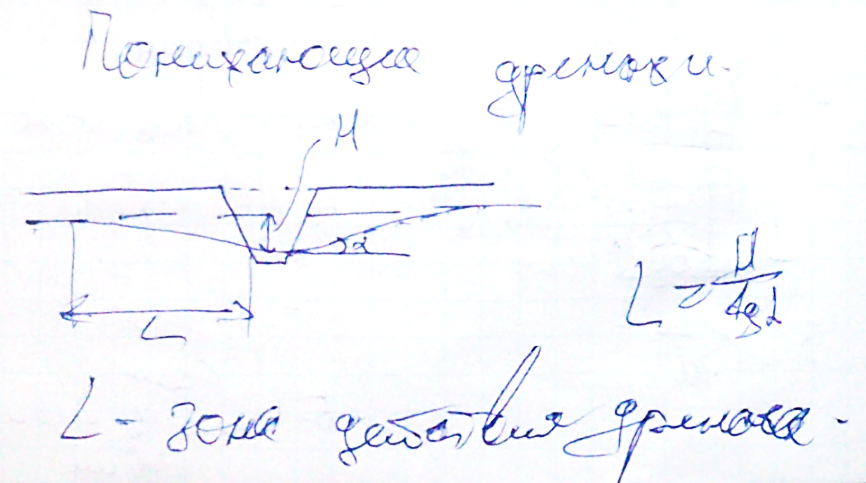 Понижающие дренажи.
H
α
L = H / tg α
L
L - зона действия дренажа.